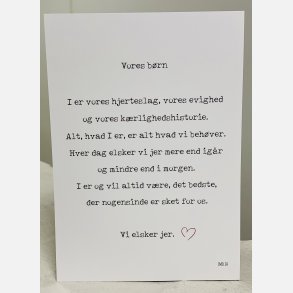 Vores børn
I er vores hjerteslag, vores evighed
og vores kærlighedshistorie.
Alt, hvad I er, er alt hvad vi behøver.
Hver dag elsker vi jer mere end igår
og mindre end i morgen.
I er og vil altid være, det bedste,
der nogensinde er sket for os.
Vi elsker jer.